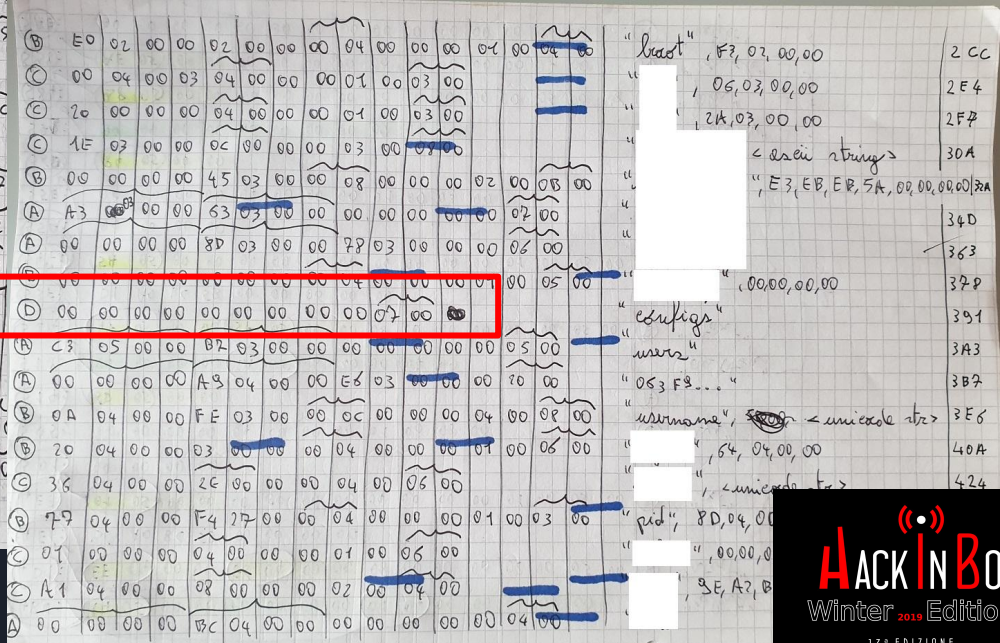 B E0 02 00 00 02 00 00 00 04 00 00 00 01 00 04 00 "boot", E3, 02, 00, 00 2CC
C 00 04 00 03 04 00 00 00 01 00 03 00 " , 06, 03, 00, 00 2E4
C 20 00 00 00 04 00 00 01 00 03 00 " , 2A, 03, 00, 00 2F7
C 1E 03 00 00 0C 00 00 00 03 00 08 00 " <ascii string> 30A
B 00 00 00 00 45 03 00 00 08 00 00 00 02 00 0B 00 " ", E3, EB, EB, 5A, 00, 00, 00, 00 32A
A A3 03 00 00 63 03 00 00 00 00 00 00 00 07 00 " 34D
A 00 00 00 00 8D 03 00 00 78 03 00 00 00 06 00 " 363
00 00 00 00 00 00 00 00 04 00 00 00 01 00 05 00 " ", 00, 00, 00, 00 378
D 00 00 00 00 00 00 00 00 00 07 00 "configs" 391
A C3 05 00 00 B7 03 00 00 00 00 00 00 00 05 00 "users" 3A3
A 00 00 00 00 A9 04 00 00 E6 03 00 00 00 20 00 "063F9..." 3B7
B 0A 04 00 00 FE 03 00 00 0C 00 00 00 04 00 08 00 "username", <unicode str> 3E6
B 20 04 00 00 03 00 00 00 04 00 00 00 01 00 06 00 " ", 64, 04, 00, 00 40A
C 36 04 00 00 2E 00 00 04 00 06 00 " ", <unicode str> 424
B 77 04 00 00 F4 27 00 00 04 00 00 00 01 00 03 00 "pid", 8D, 04, 00
C 01 00 00 00 04 00 00 01 00 06 00 " ", 00, 00, 0
C A1 04 00 00 08 00 00 02 00 04 00 " ", 9E, A2, B
A 00 00 00 00 BC 04 00 00 00 00 00 00 00 04 00 "
HACKINBO
Winter 2019 Edition
17a EDIZIONE